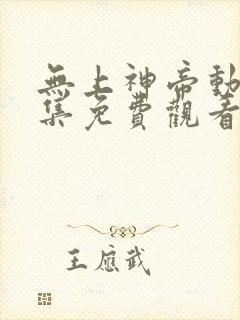 無上神帝動
集免費觀看
王應武